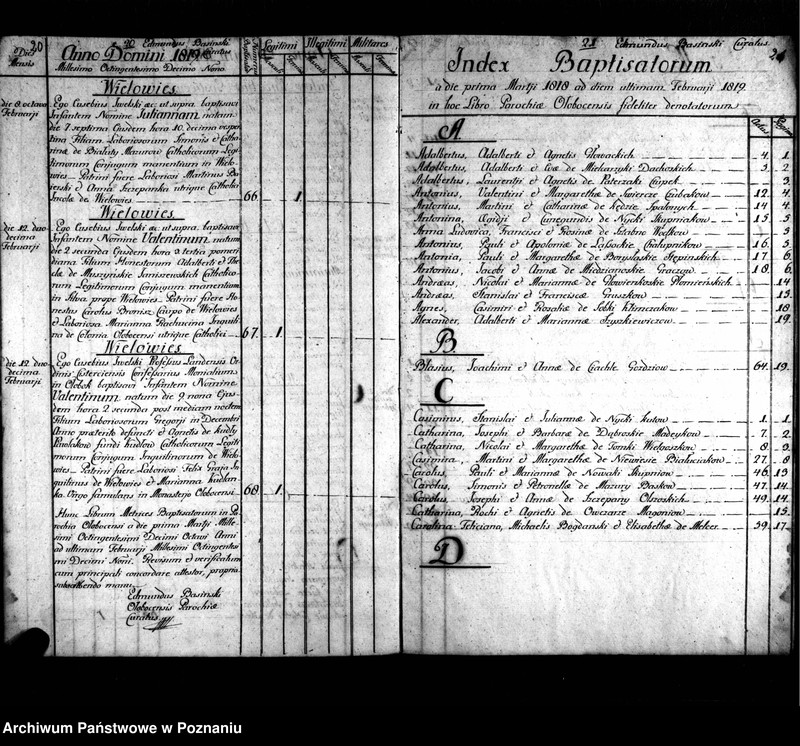 20
20 Edmundus Basinski
Curatus
Dies
Mensis
Anno Domini 1819
Millesimo Octingentesimo Decimo Nono
Legitimi
Illegitimi
Militares
Wielowies
die 8 octava
Februarii
Ego Eusebius Swelski ac ut supra baptisavi
Infantem Nomine Juliannam natam
die 7 septima Ejusdem hora 10 decima vesper
tina Filiam Laboriosorum Simonis et Catha
rinæ de Catholicorum Legi
timorum Conjugum manentium in Wielo
wies Patrini fuere Laboriosi Martinus
et Anna Szczepanka utrique Catholici
Incolæ de Wielowies
66 1
Wielowies
die 12 duo
decima
Februarii
Ego Eusebius Swelski ac ut supra baptisavi
Infantem Nomine Valentinum natum
die 2 secunda Ejusdem hora 3 tertia pomeri
diana Filium Honestorum Adalberti et The
clæ de Muszyńskie Janiszewskich Catholico
rum Legitimorum Conjugum manentium
in Silva prope Wielowies Patrini fuere Ho
nestus Carolus Bronisz Caupo de Wielowies
et Laboriosa Marianna Rachucina Inquili
na de Colonia Olobocensi utrique Catholici
67 1
Wielowies
die 12 duo
decima
Februarii
Ego Eusebius Swelski Professus Landensis Or
dinis Cisterciensis Confessarius Monialium
in Olobok baptisavi Infantem Nomine
Valentinum natum die 9 nona Ejus
dem hora 2 secunda post mediam noctem
Filium Laboriosorum Gregorii in Decembri
Anno præterito defuncti et Agnetis de
Catholicorum Legiti
morum Conjugum Inquilinorum de Wielo
wies Patrini fuere Laboriosi Felix Graja In
quilinus de Wielowies et Marianna
Virgo famulans in Monasterio Olobocensi
68 1
Hunc Librum Metrices Baptisatorum in Pa
rochia Olobocensi a die prima Martii Mille
simi Octingentesimi Decimi Octavi Anni
ad ultimam Februarii Millesimi Octingentesi
mi Decimi Noni Revisum et verificatum
cum principali concordare attestor, propria
subscribendo manu
Edmundus Basinski
Olobocensis Parochiæ
Curatus
21 Edmundus Basinski Curatus
21
Index Baptisatorum
a die prima Martii 1818 ad diem ultimam Februarii 1819
in hoc Libro Parochiæ Olobocensis fideliter denotatorum
Actus
Pagina
A
Adalbertus, Adalberti et Agnetis Glowackich 4. 1.
Adalbertus, Adalberti et Evæ de Mielcarzyki Dachorskich 3. 2.
Adalbertus, Laurentii et Agnetis de Paterzaki Czipek 3.
Antonius, Valentini et Margarethæ de Swiercze Czubakow 12. 4.
Antonius, Martini et Catharinæ de Kędzie Spalonych 14. 4.
Antonina, Egidii et Cunegundis de Nycki Skupniakow 15. 5.
Anna Ludovica, Francisci et Rosinæ de Woelkow 5.
Antonius, Pauli et Apoloniæ de Lasackie Chalupnikow 16. 5.
Antonia, Pauli et Margarethæ de Boryslaskie Stępinskich 17. 6.
Antonius, Jacobi et Annæ de Miedzianoskie Graczow 18. 6.
Andræas, Nicolai et Mariannæ de Glowienkoskie Plomieńskich 14.
Andræas, Stanislai et Franciscæ Gruszkow 15.
Agnes, Casimiri et Rosaliæ de Sobki Klimczakow 18.
Alexander, Adalberti et Mariannæ Szyszkiewiczow 19.
B
Blasius, Joachimi et Annæ de Czachle Gozdziow 64. 19.
C
Casimirus, Stanislai et Juliannæ de Nycki Kutow 1. 1.
Catharina, Josephi et Barbaræ de Dąbroskie Madeykow 7. 2.
Catharina, Nicolai et Margarethæ de Tomki Wielgoszkow 8. 3.
Casimira, Martini et Margarethæ de Niewiesie Bialuciakow 27. 8
Carolus, Pauli et Mariannæ de Nowaki Skupniow 46. 13
Carolus, Simonis et Petronellæ de Mazury Baskow 47. 14.
Carolus, Josephi et Annæ de Szczepany Olszeskich 49. 14
Catharina, Rochi et Agnetis de Owczarze Magoniow 15.
Carolina Feliciana, Michaelis Bogdanski et Elisabethæ de Meker 59. 17.
D
Archiwum Państwowe w Poznaniu